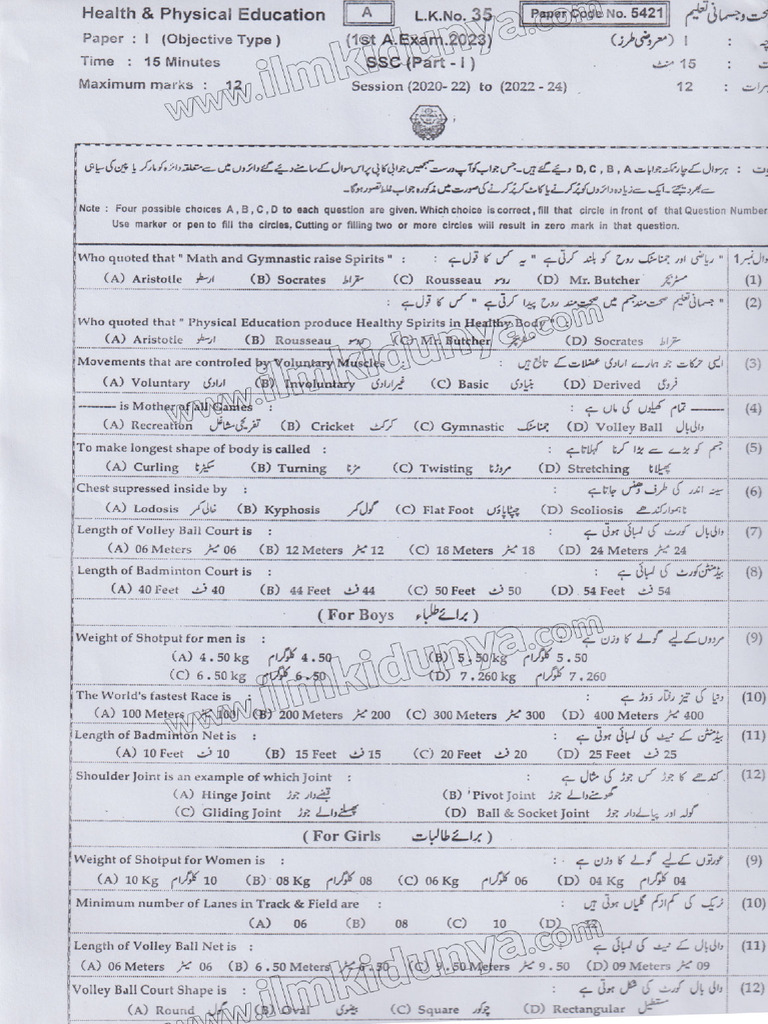 Health & Physical Education A L.K.No. 35 Paper Code No. 5421 صحت و جسمانی تعلیم
Paper : I (Objective Type) (1st A.Exam.2023) I (معروضی طرز) :
Time : 15 Minutes SSC (Part - I) 15 منٹ :
Maximum marks : 12 Session (2020- 22) to (2022 - 24) 12 :
ہر سوال کے چار ممکنہ جوابات D, C, B, A دیئے گئے ہیں۔ جس جواب کو آپ درست سمجھیں جوابی کاپی پر اس سوال کے سامنے دیئے گئے دائروں میں سے متعلقہ دائرہ کو مارکر یا پین کی سیاہی
سے بھر دیجئے۔ ایک سے زیادہ دائروں کو پُر کرنے یا کاٹ کر پُر کرنے کی صورت میں مذکورہ جواب غلط تصور ہوگا۔
Note : Four possible choices A , B , C , D to each question are given. Which choice is correct , fill that circle in front of that Question Number
Use marker or pen to fill the circles, Cutting or filling two or more circles will result in zero mark in that question.
Who quoted that " Math and Gymnastic raise Spirits " : : " ریاضی اور جمناسٹک روح کو بلند کرتی ہے " یہ کس کا قول ہے سوال نمبر 1
(A) Aristotle ارسطو (B) Socrates سقراط (C) Rousseau روسو (D) Mr. Butcher مسٹر بچر (1)
" جسمانی تعلیم صحت مند جسم میں صحت مند روح پیدا کرتی ہے " کس کا قول ہے : (2)
Who quoted that " Physical Education produce Healthy Spirits in Healthy Body " :
(A) Aristotle ارسطو (B) Rousseau روسو (C) Mr. Butcher مسٹر بچر (D) Socrates سقراط
Movements that are controled by Voluntary Muscles : : ایسی حرکات جو ہمارے ارادی عضلات کے تابع ہیں (3)
(A) Voluntary ارادی (B) Involuntary غیر ارادی (C) Basic بنیادی (D) Derived فروعی
--------- is Mother of all Games : : -------- تمام کھیلوں کی ماں ہے (4)
(A) Recreation تفریحی مشاغل (B) Cricket کرکٹ (C) Gymnastic جمناسٹک (D) Volley Ball والی بال
To make longest shape of body is called : : جسم کو بڑے سے بڑا کرنا کہلاتا ہے (5)
(A) Curling سکیڑنا (B) Turning مڑنا (C) Twisting مروڑنا (D) Stretching پھیلانا
Chest supressed inside by : : سینہ اندر کی طرف دھنس جاتا ہے (6)
(A) Lodosis خالی کمر (B) Kyphosis گول کمر (C) Flat Foot چپٹا پاؤں (D) Scoliosis ناہموار کندھے
Length of Volley Ball Court is : : والی بال کورٹ کی لمبائی ہوتی ہے (7)
(A) 06 Meters 06 میٹر (B) 12 Meters 12 میٹر (C) 18 Meters 18 میٹر (D) 24 Meters 24 میٹر
Length of Badminton Court is : : بیڈمنٹن کورٹ کی لمبائی ہے (8)
(A) 40 Feet 40 فٹ (B) 44 Feet 44 فٹ (C) 50 Feet 50 فٹ (D) 54 Feet 54 فٹ
( For Boys برائے طلباء )
Weight of Shotput for men is : : مردوں کے لیے گولے کا وزن ہے (9)
(A) 4.50 kg 4.50 کلوگرام (B) 5.50 kg 5.50 کلوگرام
(C) 6.50 kg 6.50 کلوگرام (D) 7.260 kg 7.260 کلوگرام
The World's fastest Race is : : دنیا کی تیز رفتار دوڑ ہے (10)
(A) 100 Meters 100 میٹر (B) 200 Meters 200 میٹر (C) 300 Meters 300 میٹر (D) 400 Meters 400 میٹر
Length of Badminton Net is : : بیڈمنٹن کے نیٹ کی لمبائی ہوتی ہے (11)
(A) 10 Feet 10 فٹ (B) 15 Feet 15 فٹ (C) 20 Feet 20 فٹ (D) 25 Feet 25 فٹ
Shoulder Joint is an example of which Joint : : کندھے کا جوڑ کس جوڑ کی مثال ہے (12)
(A) Hinge Joint قبضے دار جوڑ (B) Pivot Joint گھومنے والے جوڑ
(C) Gliding Joint پھسلنے والے جوڑ (D) Ball & Socket Joint گولہ اور پیالے دار جوڑ
( For Girls برائے طالبات )
Weight of Shotput for Women is : : عورتوں کے لیے گولے کا وزن ہے (9)
(A) 10 Kg 10 کلوگرام (B) 08 Kg 08 کلوگرام (C) 06 Kg 06 کلوگرام (D) 04 Kg 04 کلوگرام
Minimum number of Lanes in Track & Field are : : ٹریک کی کم از کم گلیاں ہوتی ہیں (10)
(A) 06 (B) 08 (C) 10 (D) 12
Length of Volley Ball Net is : : والی بال کے نیٹ کی لمبائی ہے (11)
(A) 06 Meters 06 میٹر (B) 6.50 Meters 6.50 میٹر (C) 9.50 Meters 9.50 میٹر (D) 09 Meters 09 میٹر
Volley Ball Court Shape is : : والی بال کورٹ کی شکل ہوتی ہے (12)
(A) Round گول (B) Oval بیضوی (C) Square چوکور (D) Rectangular مستطیل
www.ilmkidunya.com
www.ilmkidunya.com
www.ilmkidunya.com
www.ilmkidunya.com